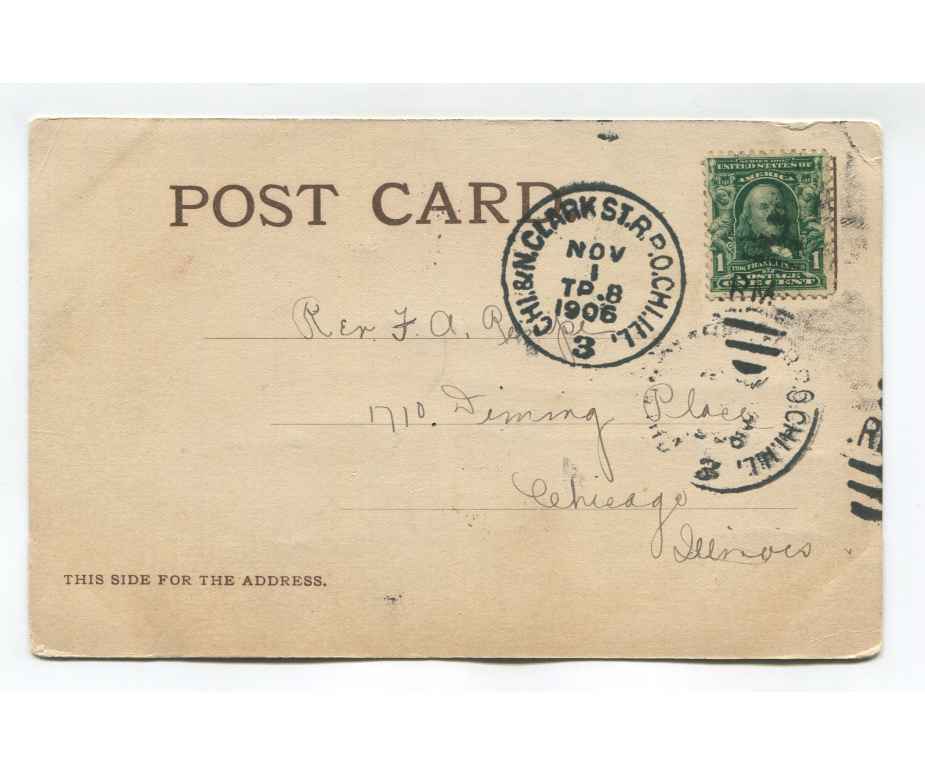 POST CARD
SERIES 1902
UNITED STATES OF
AMERICA
1 FRANKLIN 1
POSTAGE
ONE CENT
CHI. & N. CLARK ST. R.P.O. CHI. ILL.
NOV
1
TP.8
1906
3
R.M.
P.O. CHI. ILL.
Rev F. A.
1710. Deming Place
Chicago
Illinois
THIS SIDE FOR THE ADDRESS.